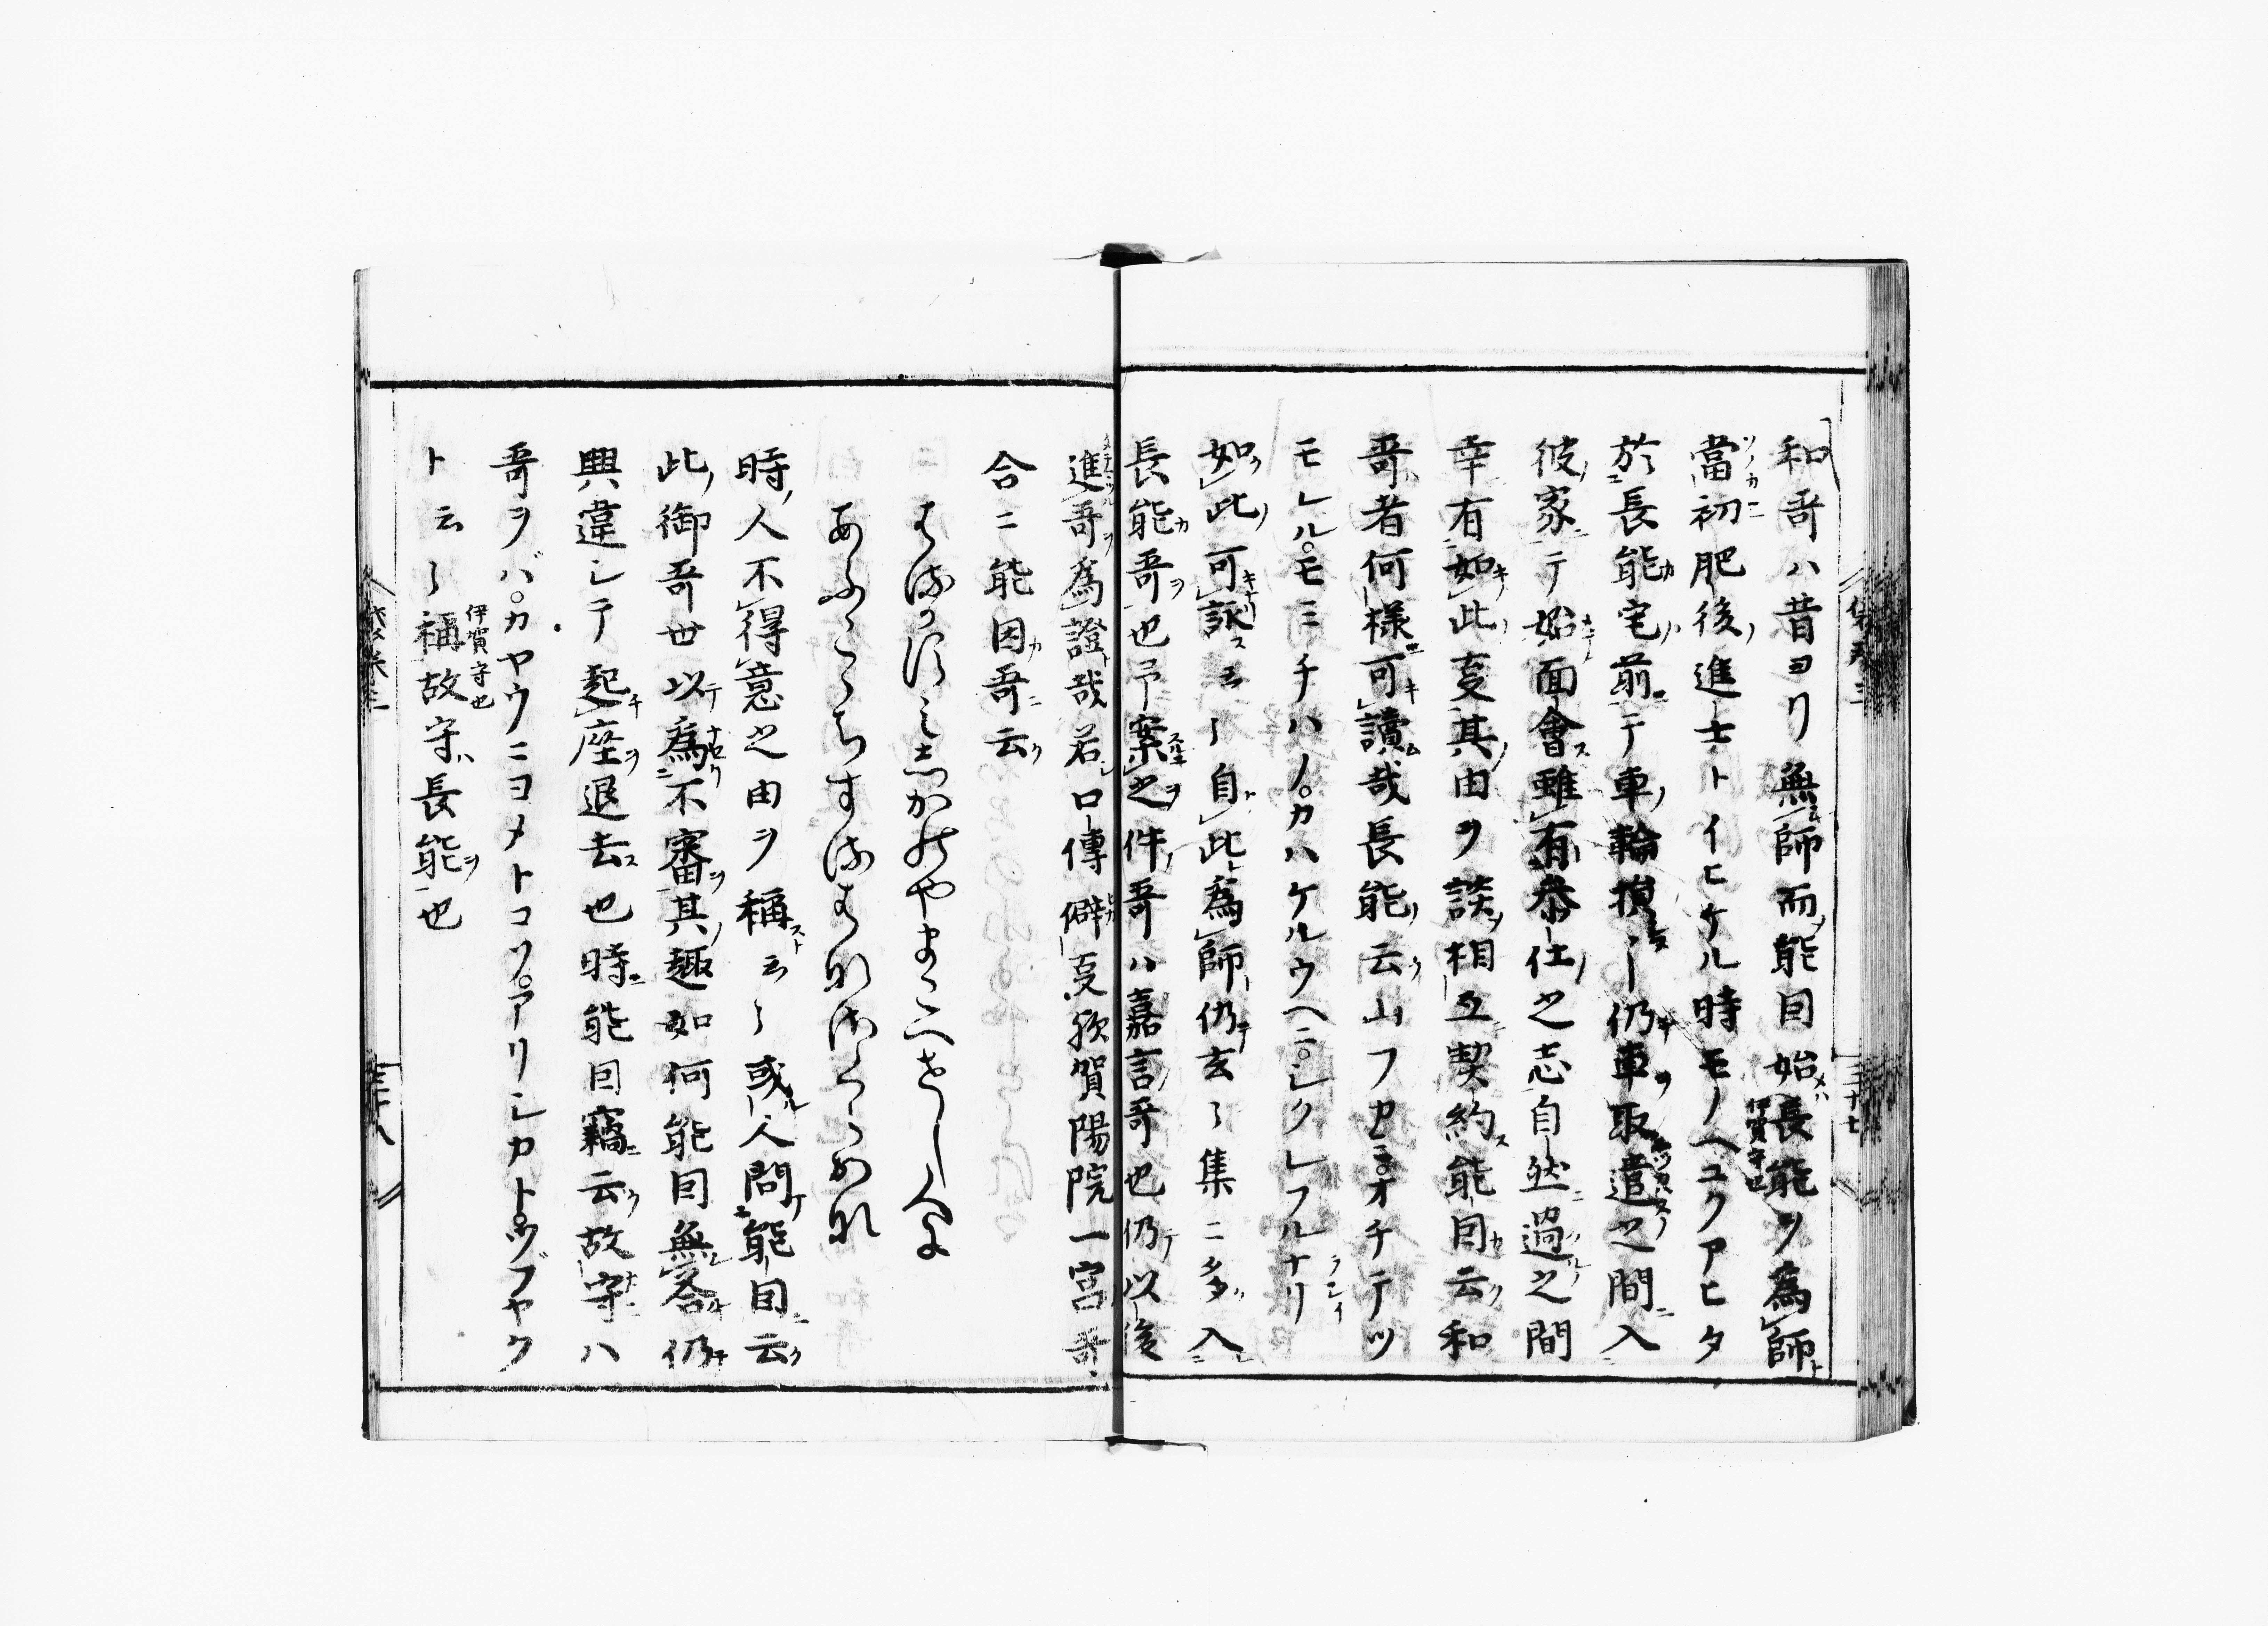 和哥ハ昔ヨリ無師而能因始長能ヲ為師
當初肥後進士トイヒケル時モノヘユクアヒタ
於長能宅前テ車輪損〻仍車取遣之間入
彼家テ始面會雖有参仕之志自然過之間
幸有如此支其由ヲ談相互契約能因云和
哥者何様可讀哉長能云山フカミ。オチテツ
モレル。モミチハノ。カハケルウヘニ。シクレフルナリ
如此可詠云〻自此為師仍玄〻集ニ多入
長能哥也予案之件哥ハ嘉言哥也仍以後
進哥為證哉若口傳僻支欤賀陽院一宮哥
合ニ能因哥云
はるかすみしかのやまこへせし人に
あふこゝちするはなさくらかな
時人不得意之由ヲ稱云〻或人問能因云
此御哥世以為不審其趣如何能因無答仍
興違シテ起座退去也時能因竊云故守ハ
哥ヲバ。カヤウニヨメトコソ。アリシカト。ツブヤク
ト云〻稱故守ハ長能也
伊賀守也